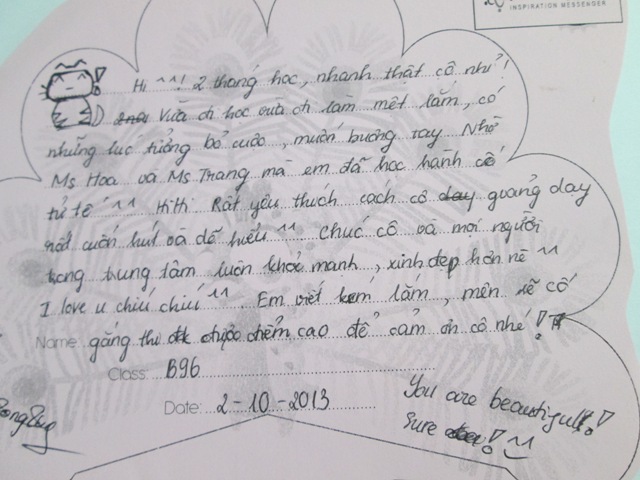 INSPIRATION MESSENGER
Hi ^^! 2 tháng học, nhanh thật cô nhỉ!
Vừa đi học vừa đi làm mệt lắm, có
những lúc tưởng bỏ cuộc, muốn buông tay. Nhờ
Ms Hoa và Ms Trang mà em đã học hành cố
tử tế ^^ Hihi Rất yêu thích cách cô day quảng dạy
rất cuốn hút và dễ hiểu ^^ Chúc cô và mọi người
trong trung tâm luôn khỏe mạnh, xinh đẹp hơn nè ^^
I love u chíu chíu ^^ Em viết kém lắm, nên sẽ cố
Name: gắng thi được điểm cao để cảm ơn cô nhé!
Class: B96
Date: 2-10-2013
You are beautiful!
Sure!